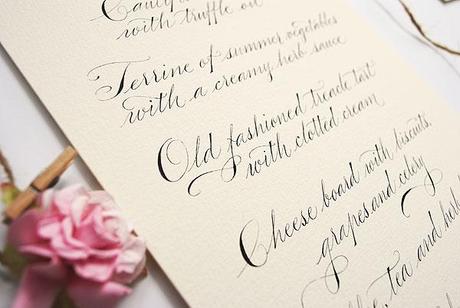 with truffle oil
Terrine of summer vegetables
with a creamy herb sauce
Old fashioned treacle tart
with clotted cream
Cheese board with biscuits,
grapes and celery
tea and herb